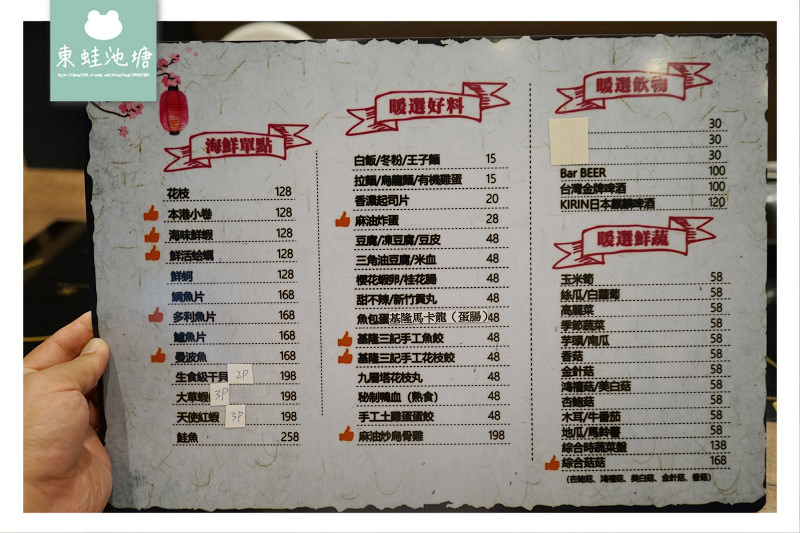 東蛙池塘
海鮮單點
花枝 128
本港小卷 128
海味鮮蝦 128
鮮活蛤蠣 128
鮮蚵 128
鯛魚片 168
多利魚片 168
鱸魚片 168
曼波魚 168
生食級干貝 2P 198
大草蝦 3P 198
天使紅蝦 3P 198
鮭魚 258
暖選好料
白飯/冬粉/王子麵 15
拉麵/烏龍麵/有機雞蛋 15
香濃起司片 20
麻油炸蛋 28
豆腐/凍豆腐/豆皮 48
三角油豆腐/米血 48
櫻花蝦卵/桂花腸 48
甜不辣/新竹貢丸 48
魚包蛋基隆馬卡龍(蛋腸) 48
基隆三記手工魚餃 48
基隆三記手工花枝餃 48
九層塔花枝丸 48
秘制鴨血(熟食) 48
手工土雞蛋蛋餃 48
麻油炒烏骨雞 198
暖選飲物
30
30
30
Bar BEER 100
台灣金牌啤酒 100
KIRIN日本麒麟啤酒 120
暖選鮮蔬
玉米筍 58
絲瓜/白蘿蔔 58
高麗菜 58
季節蔬菜 58
芋頭/南瓜 58
香菇 58
金針菇 58
鴻禧菇/美白菇 58
杏鮑菇 58
木耳/牛番茄 58
地瓜/馬鈴薯 58
綜合時蔬菜盤 138
綜合菇菇 168
(杏鮑菇、鴻禧菇、美白菇、金針菇、香菇)